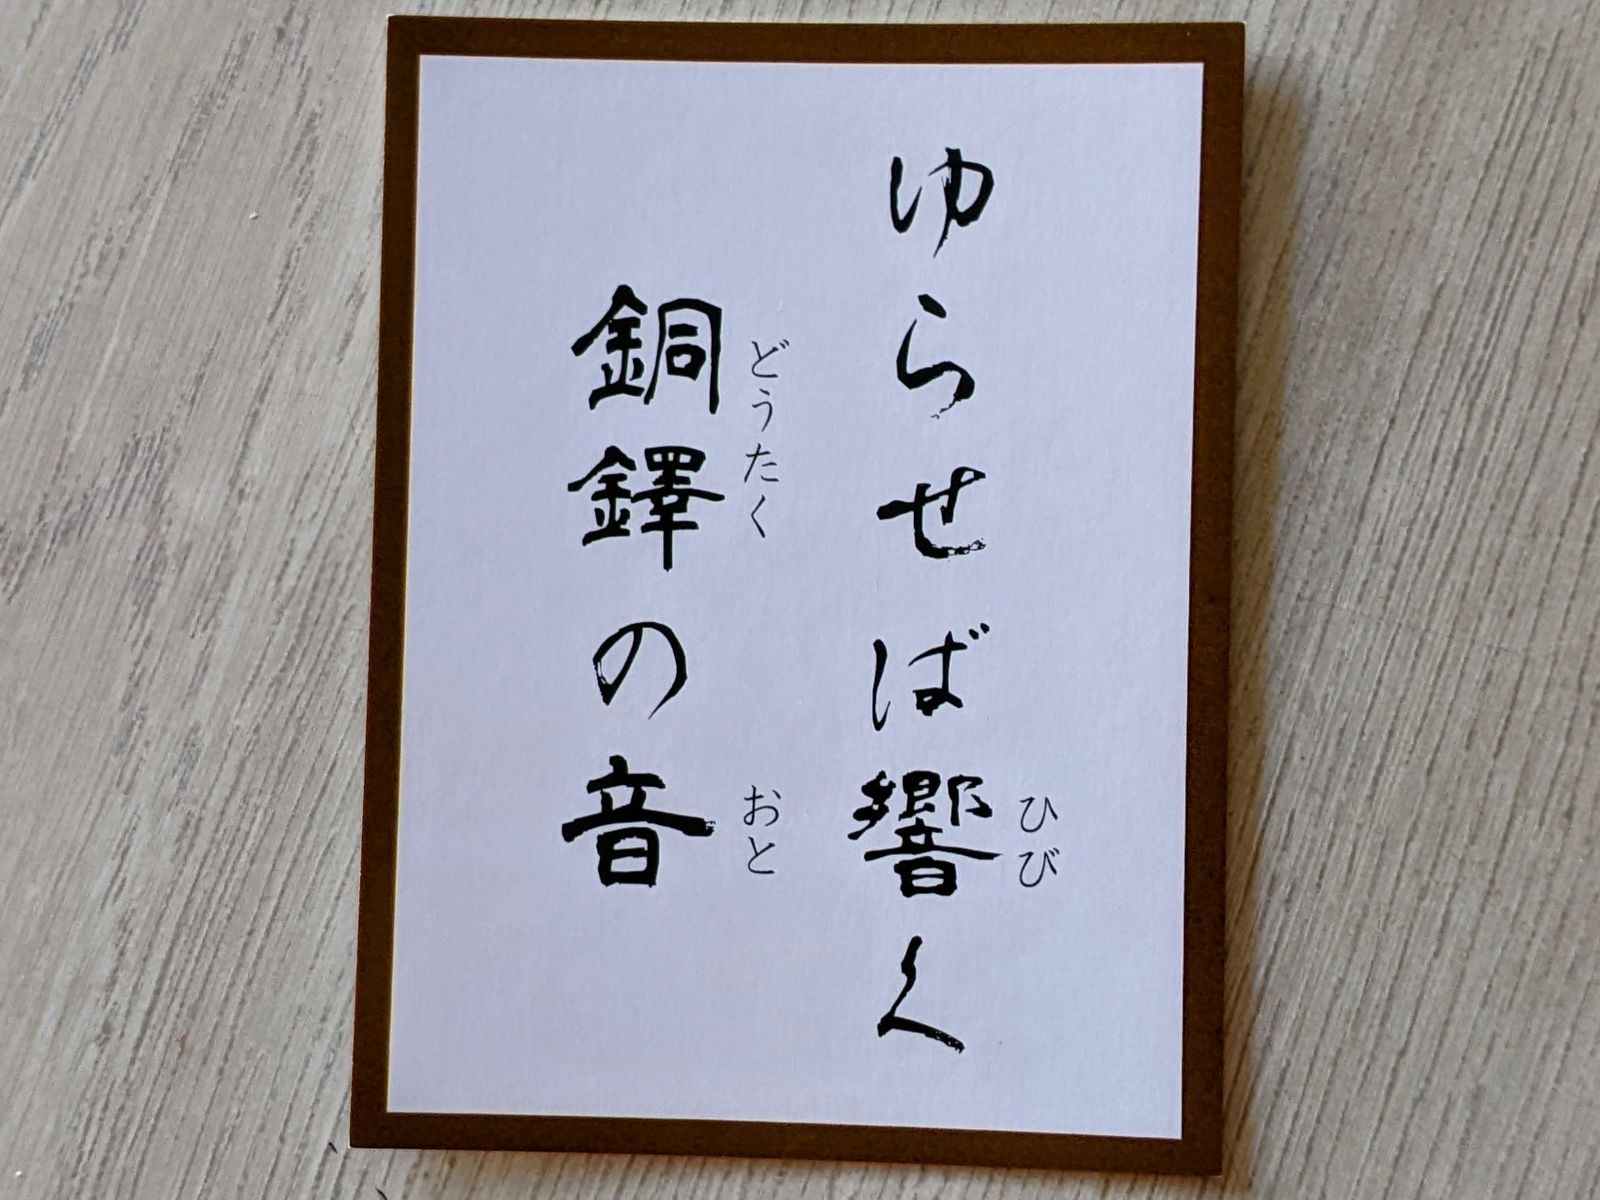 ゆらせば響く
ひび
銅鐸の音
どうたく
おと